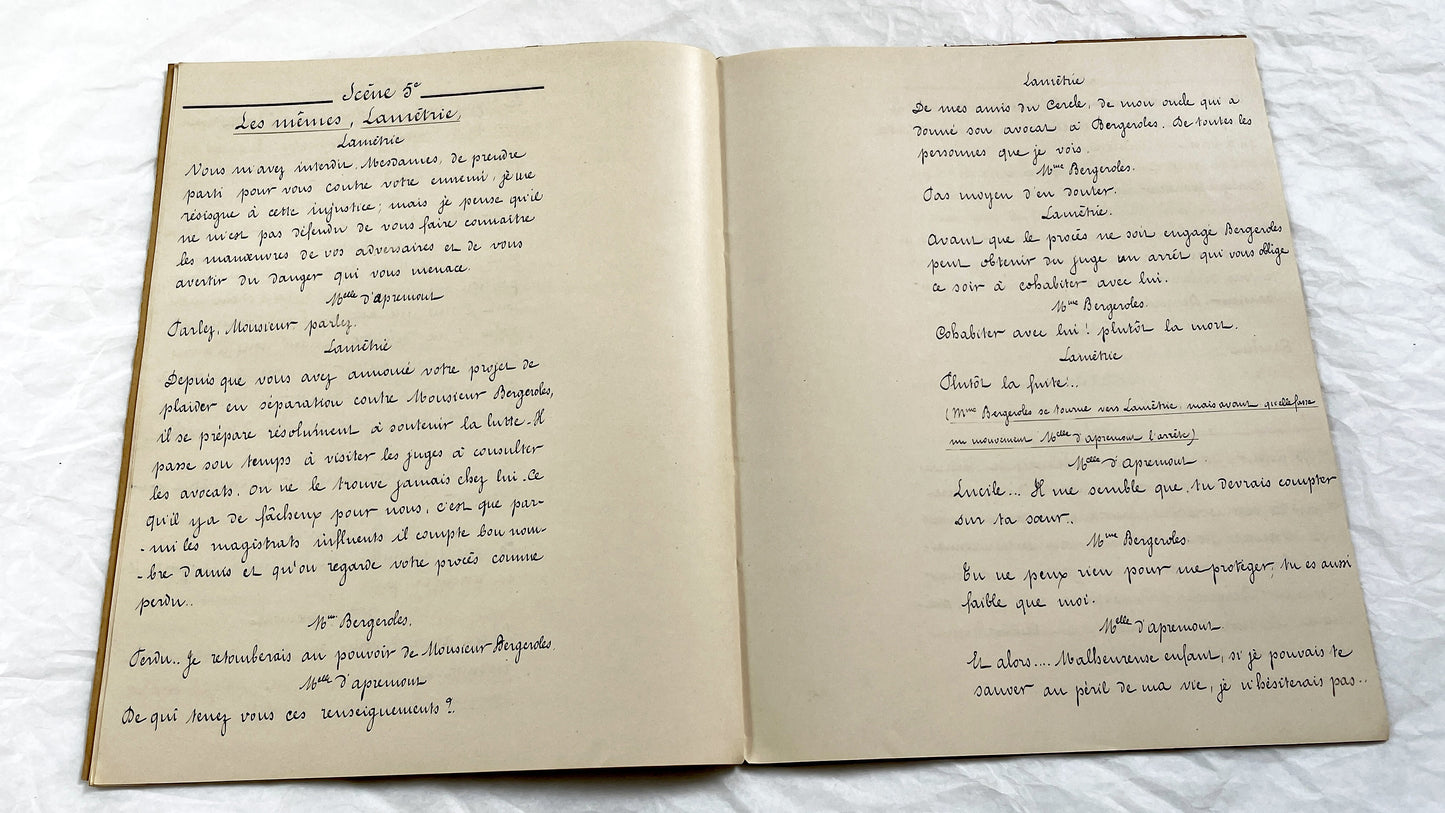 Scène 5e
Les mêmes, Lamétrie,
Lamétrie
Vous m'avez interdit, Mesdames, de prendre
parti pour vous contre votre ennemi, je me
résigne à cette injustice; mais je pense qu'il
ne m'est pas défendu de vous faire connaître
les manœuvres de vos adversaires et de vous
avertir du danger qui vous menace.
Melle d'apremont
Parlez, Monsieur parlez.
Lamétrie
Depuis que vous avez annoncé votre projet de
plaider en séparation contre Monsieur Bergeroles,
il se prépare résolument à soutenir la lutte. Il
passe son temps à visiter les juges à consulter
les avocats. On ne le trouve jamais chez lui. Ce
qu'il y a de fâcheux pour nous, c'est que par-
-mi les magistrats influents il compte bon nom-
-bre d'amis et qu'on regarde votre procès comme
perdu..
Mme Bergeroles.
Perdu.. Je retomberais au pouvoir de Monsieur Bergeroles.
Melle d'apremont
De qui tenez vous ces renseignements?.
Lamétrie
De mes amis du Cercle, de mon oncle qui a
donné son avocat à Bergeroles. De toutes les
personnes que je vois.
Mme Bergeroles.
Pas moyen d'en douter.
Lamétrie.
Avant que le procès ne soit engagé Bergeroles
peut obtenir du juge un arrêt qui vous oblige
ce soir à cohabiter avec lui.
Mme Bergeroles.
Cohabiter avec lui! plutôt la mort.
Lamétrie
Plutôt la fuite!..
(Mme Bergeroles se tourne vers Lamétrie, mais avant qu'elle fasse
un mouvement Melle d'apremont l'arrête)
Melle d'apremont
Lucile... Il me semble que tu devrais compter
sur ta sœur..
Mme Bergeroles.
Tu ne peux rien pour me protéger, tu es aussi
faible que moi.
Melle d'apremont
Et alors.... Malheureuse enfant, si je pouvais te
sauver au péril de ma vie, je n'hésiterais pas..